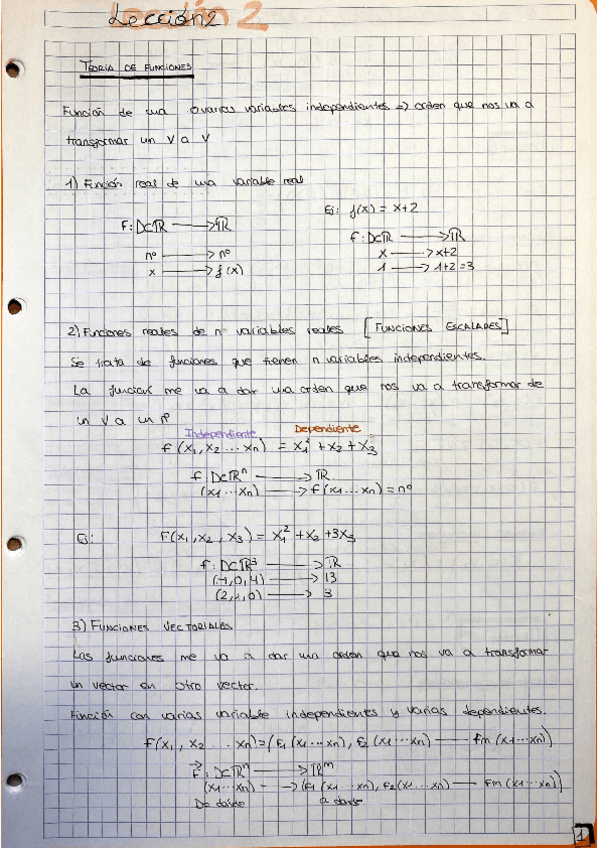 Lección 2
TEORIA DE FUNCIONES
Función de una o varias variables independientes => orden que nos va a
transformar un V a V
1) Función real de una variable real
Ej: f(x) = x+2
F: D⊂ℝ → ℝ
f: D⊂ℝ → ℝ
nº → nº
x → x+2
x → f(x)
1 → 1+2=3
2) Funciones reales de n variables reales [FUNCIONES ESCALARES]
Se trata de funciones que tienen n variables independientes.
La función me va a dar una orden que nos va a transformar de
un V a un nº
Independiente Dependiente
f(x₁, x₂ ... xn) = x₁² + x₂ + x₃
f: D⊂ℝⁿ → ℝ
(x₁ ... xn) → f(x₁ ... xn) = nº
Ej: F(x₁, x₂, x₃) = x₁² + x₂ + 3x₃
f: D⊂ℝ³ → ℝ
(-1,0,4) → 13
(2,-1,0) → 3
3) FUNCIONES VECTORIALES
Las funciones me va a dar una orden que nos va a transformar
un vector en otro vector.
Función con varias variable independientes y varias dependientes.
F(x₁, x₂ ... xn) = (F₁(x₁ ... xn), F₂(x₁ ... xn) — Fm(x₁ ... xn))
F⃗: D⊂ℝⁿ → ℝᵐ
(x₁ ... xn) → (F₁(x₁ ... xn), F₂(x₁ ... xn) — Fm(x₁ ... xn))
De donde a donde
1